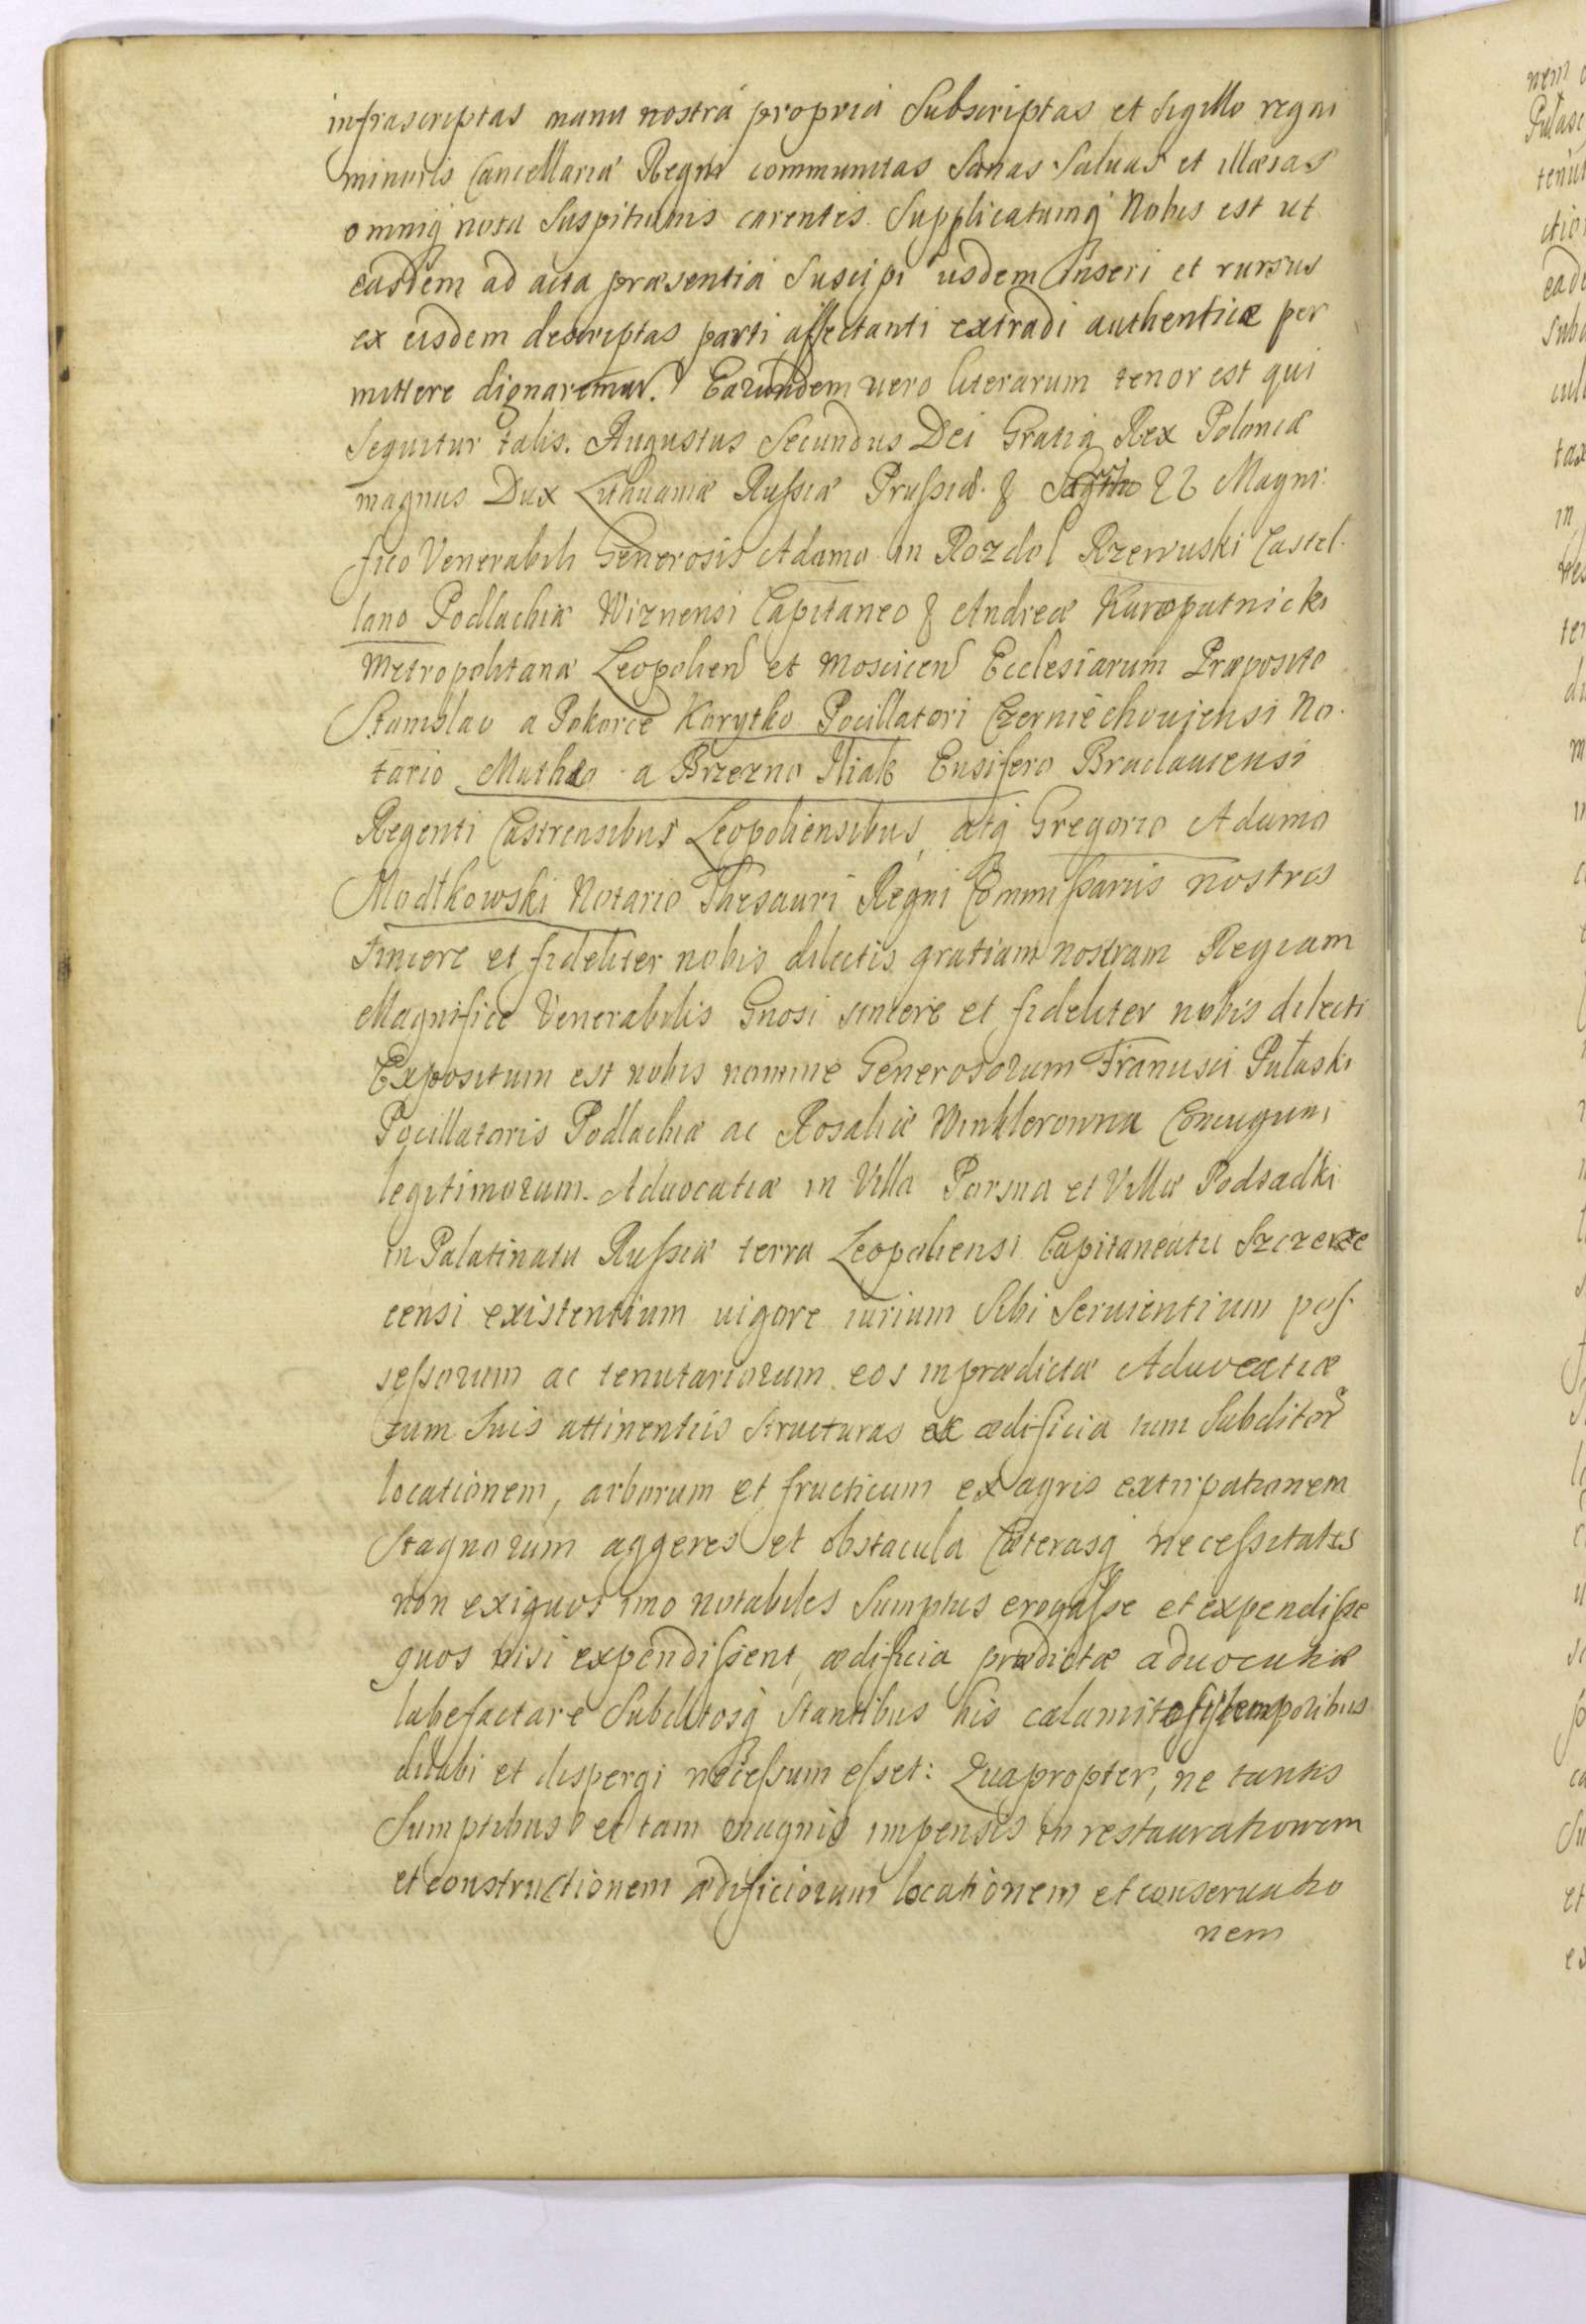 infrascriptas manu nostra propria Subscriptas et Sigillo regni
minoris Cancellariæ Regni communitas Sanas Saluas et illæsas
omniq nota Suspitionis carentes. Supplicatumq Nobis est ut
easdem ad acta præsentia Suscipi iisdem inseri et rursus
ex eisdem descriptas parti affectanti extradi authentice per
mittere dignaremur. Earundem uero literarum tenor est qui
Sequitur talis. Augustus Secundus Dei Gratia Rex Poloniæ
magnus Dux Lithuaniæ Rußiæ Prußiæ. & Magni
fico Venerabili Generosis Adamo in Rozdol Rzewuski Castel
lano Podlachiæ Wiznensi Capitaneo & Andreæ Kuropatnicki
Metropolitanæ Leopolien et Moscicen Ecclesiarum Præposito
Stanislao a Pohorce Korytko Pocillatori Czerniechoujensi No
tario Mathæo a Brzezno Iliak Ensifero Braclauiensi
Regenti Castrensibus Leopoliensibus, atq Gregorio Adamo
Modlkowski Notario Thesauri Regni Commißariis nostris
sincere et fideliter nobis dilectis gratiam nostram Regiam
Magnifice Venerabilis Gnosi sincere et fideliter nobis dilecti
Expositum est nobis nomine Generosorum Francisci Pułaski
Pocillatoris Podlachiæ ac Rosaliæ Winklerowna Coniugum
legitimorum. Aduocatiæ in Villa Porsna et Villæ Podsadki
in Palatinatu Rußiæ terra Leopoliensi Capitaneatu Szczerze
censi existentium uigore iurium Sibi Seruientium pos
seßorum ac tenutariorum eos in prædicta Aduocatia
cum Suis attinentiis Structuras et ædificia tum Subditor
locationem, arborum et fructicum ex agris extirpationem
Stagnorum aggeres et obstacula Cæterasq neceßitates
non exiguos imo notabiles Sumptus erogaße et expendiße
quos nisi expendißent, ædificia prædictæ aduocatiæ
labefactare Subditosq Stantibus his calamitosis temporibus
dilabi et dispergi neceßum eßet: Quapropter, ne tantis
Sumptibus et tam magnis impensis in restaurationem
et constructionem ædificiorum locationem et conseruatio
nem